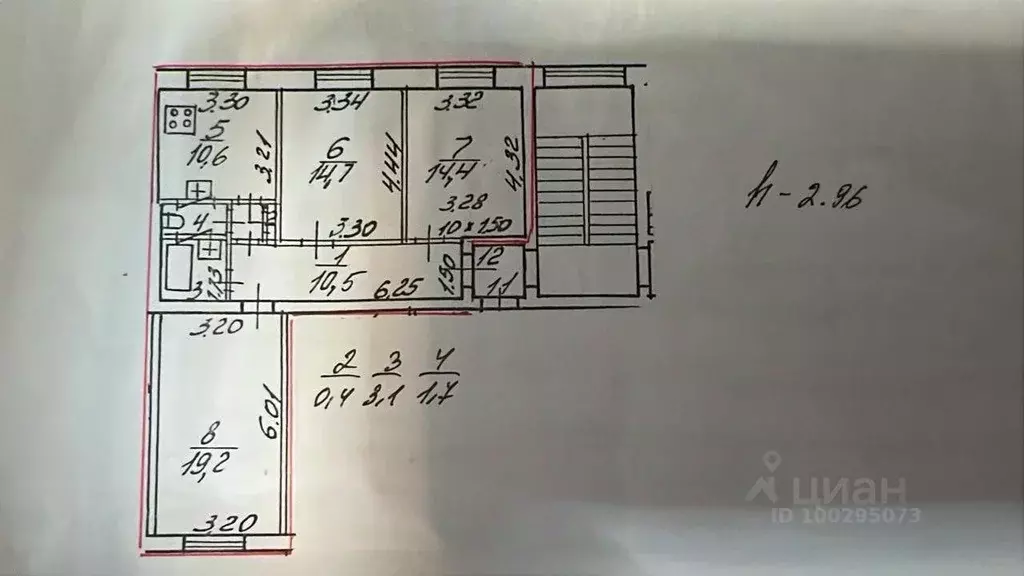 3.30
5
10,6
3.21
3.34
6
14,7
4.44
3.30
3.32
7
14,4
4.32
3.28
10×150
4
3
1.73
1
10,5
6.25
1.90
12
1.1
h - 2.96
3.20
8
19,2
6.01
3.20
2 3 4
0,4 3,1 1,7
циан
ID 100295073